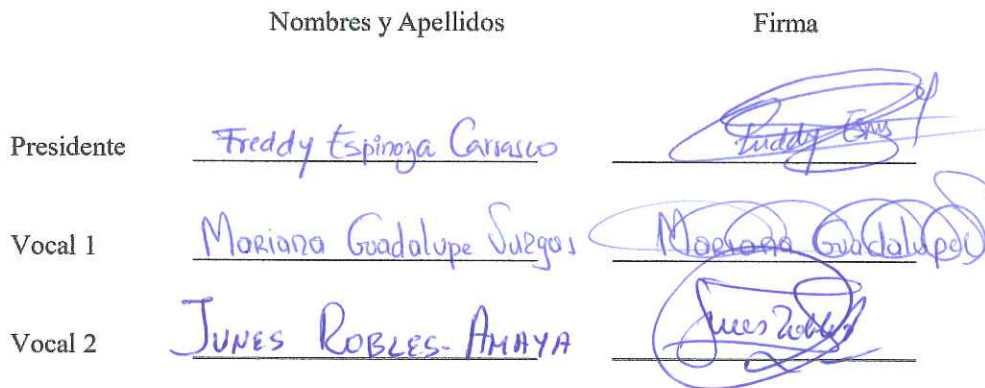 Nombres y Apellidos Firma
Presidente Freddy Espinoza Carrasco Freddy
Vocal 1 Mariana Guadalupe Mariana Guadalupe
Vocal 2 JUNES ROBLES-AMAYA